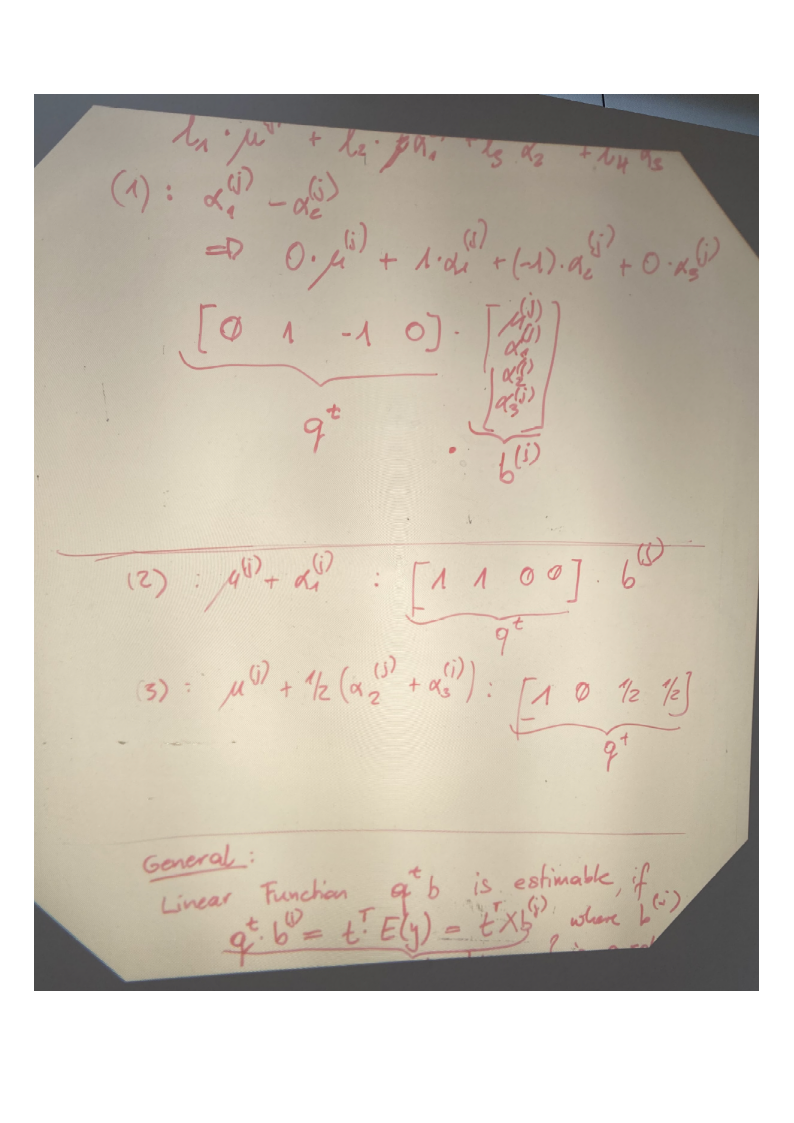 l₁ · μ⁽ʲ⁾ + l₂ · α₁ + l₃ α₂ + l₄ α₃
(1) : α₁⁽ʲ⁾ - α₂⁽ʲ⁾
⇒ 0·μ⁽ʲ⁾ + 1·α₁⁽ʲ⁾ + (-1)·α₂⁽ʲ⁾ + 0·α₃⁽ʲ⁾
[0 1 -1 0] · [μ⁽ʲ⁾
α₁⁽ʲ⁾
α₂⁽ʲ⁾
α₃⁽ʲ⁾]
qᵗ
b⁽ʲ⁾
(2) : μ⁽ʲ⁾ + α₁⁽ʲ⁾ : [1 1 0 0] · b⁽ʲ⁾
qᵗ
(3) : μ⁽ʲ⁾ + 1/2 (α₂⁽ʲ⁾ + α₃⁽ʲ⁾) : [1 0 1/2 1/2]
qᵗ
General :
Linear Function qᵗ b is estimable, if
qᵗ · b⁽ʲ⁾ = tᵀ · E(y) = tᵀ X b⁽ʲ⁾, where b⁽ʲ⁾